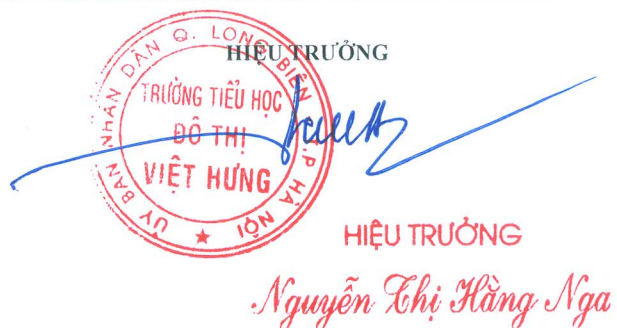 HIỆU TRƯỞNG
ỦY BAN NHÂN DÂN Q. LONG BIÊN T.P HÀ NỘI
TRƯỜNG TIỂU HỌC
ĐÔ THỊ
VIỆT HƯNG
HIỆU TRƯỞNG
Nguyễn Thị Hằng Nga